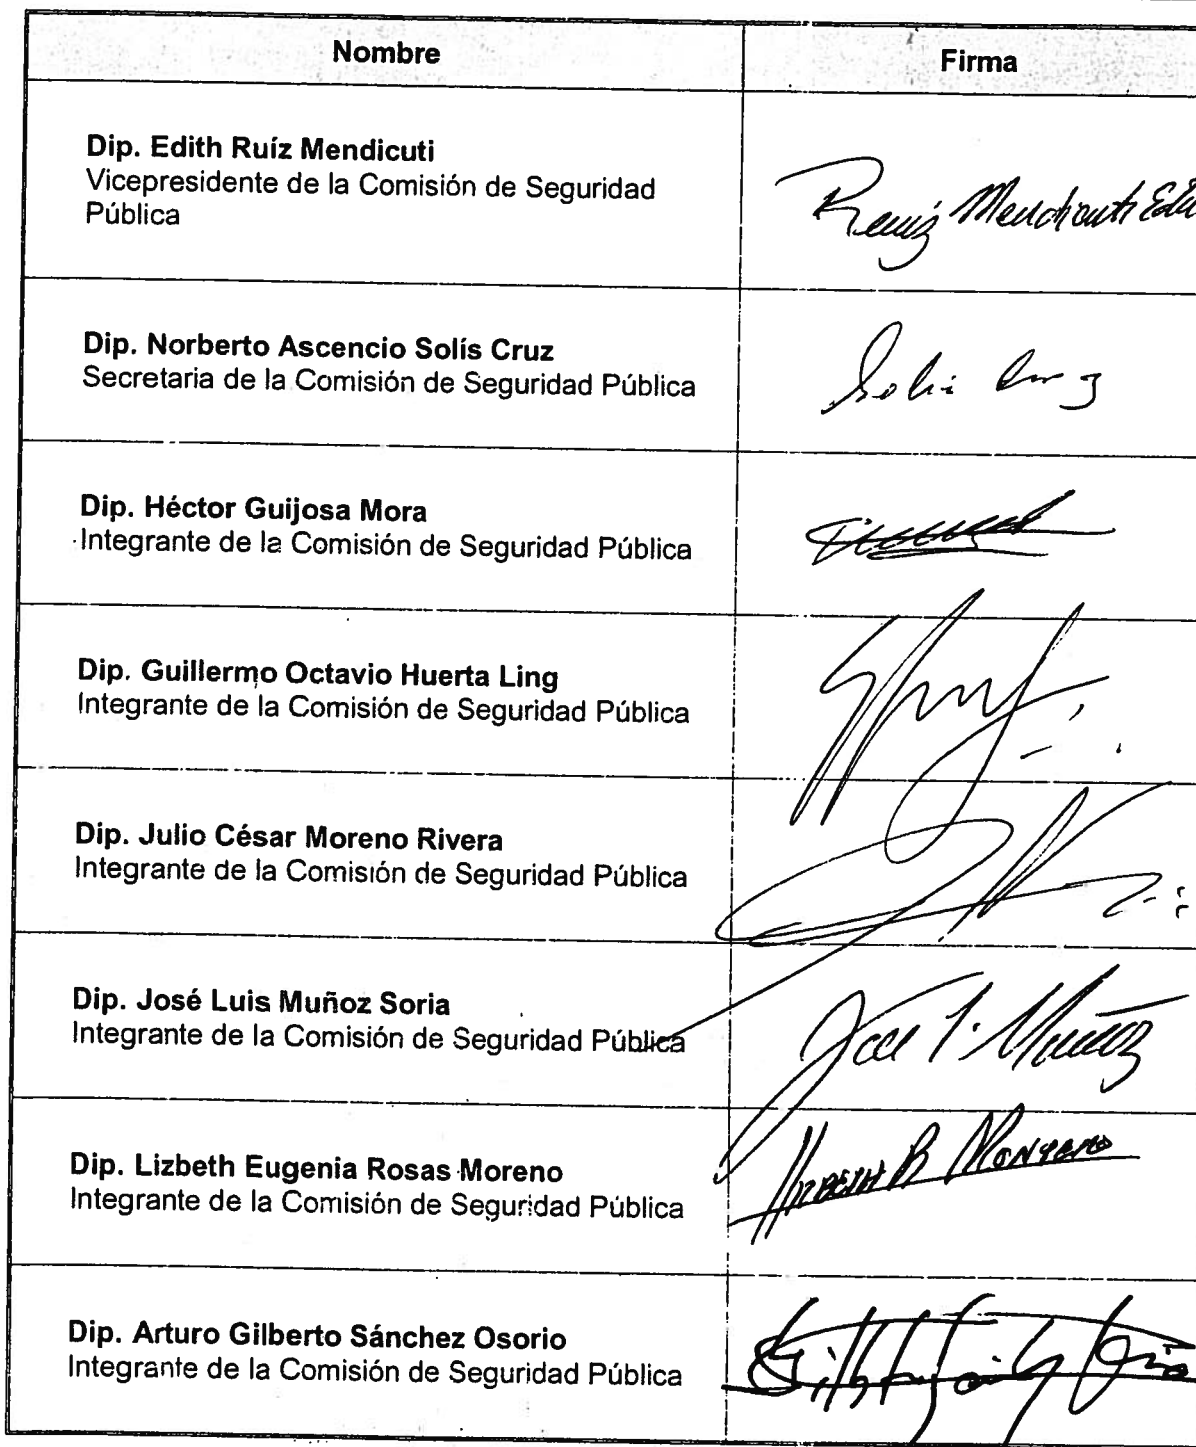 Nombre
Firma
Dip. Edith Ruíz Mendicuti
Vicepresidente de la Comisión de Seguridad
Pública
Ruiz Mendicuti
Dip. Norberto Ascencio Solís Cruz
Secretaria de la Comisión de Seguridad Pública
Solis Cruz
Dip. Héctor Guijosa Mora
Integrante de la Comisión de Seguridad Pública
Dip. Guillermo Octavio Huerta Ling
Integrante de la Comisión de Seguridad Pública
Dip. Julio César Moreno Rivera
Integrante de la Comisión de Seguridad Pública
Dip. José Luis Muñoz Soria
Integrante de la Comisión de Seguridad Pública
Jose L. Muñoz
Dip. Lizbeth Eugenia Rosas Moreno
Integrante de la Comisión de Seguridad Pública
Lizbeth R
Dip. Arturo Gilberto Sánchez Osorio
Integrante de la Comisión de Seguridad Pública